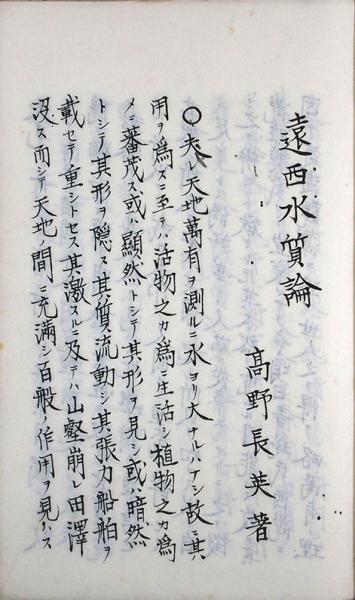 遠西水質論
高野長英著
〇夫レ天地萬有ヲ測ルニ水ヨリ大ナルハナシ故ニ其
用ヲ為スニ至テハ活物之カ為ニ生活シ植物之カ為
メニ蕃茂ス或ハ顕然トシテ其形ヲ見シ或ハ暗然
トシテ其形ヲ隠ス其質流動シ其張力船舶ヲ
載セテ重シトセス其激スルニ及テハ山壑崩レ田澤
没ス而シテ天地ノ間ニ充満シ百般ノ作用ヲ見ハス